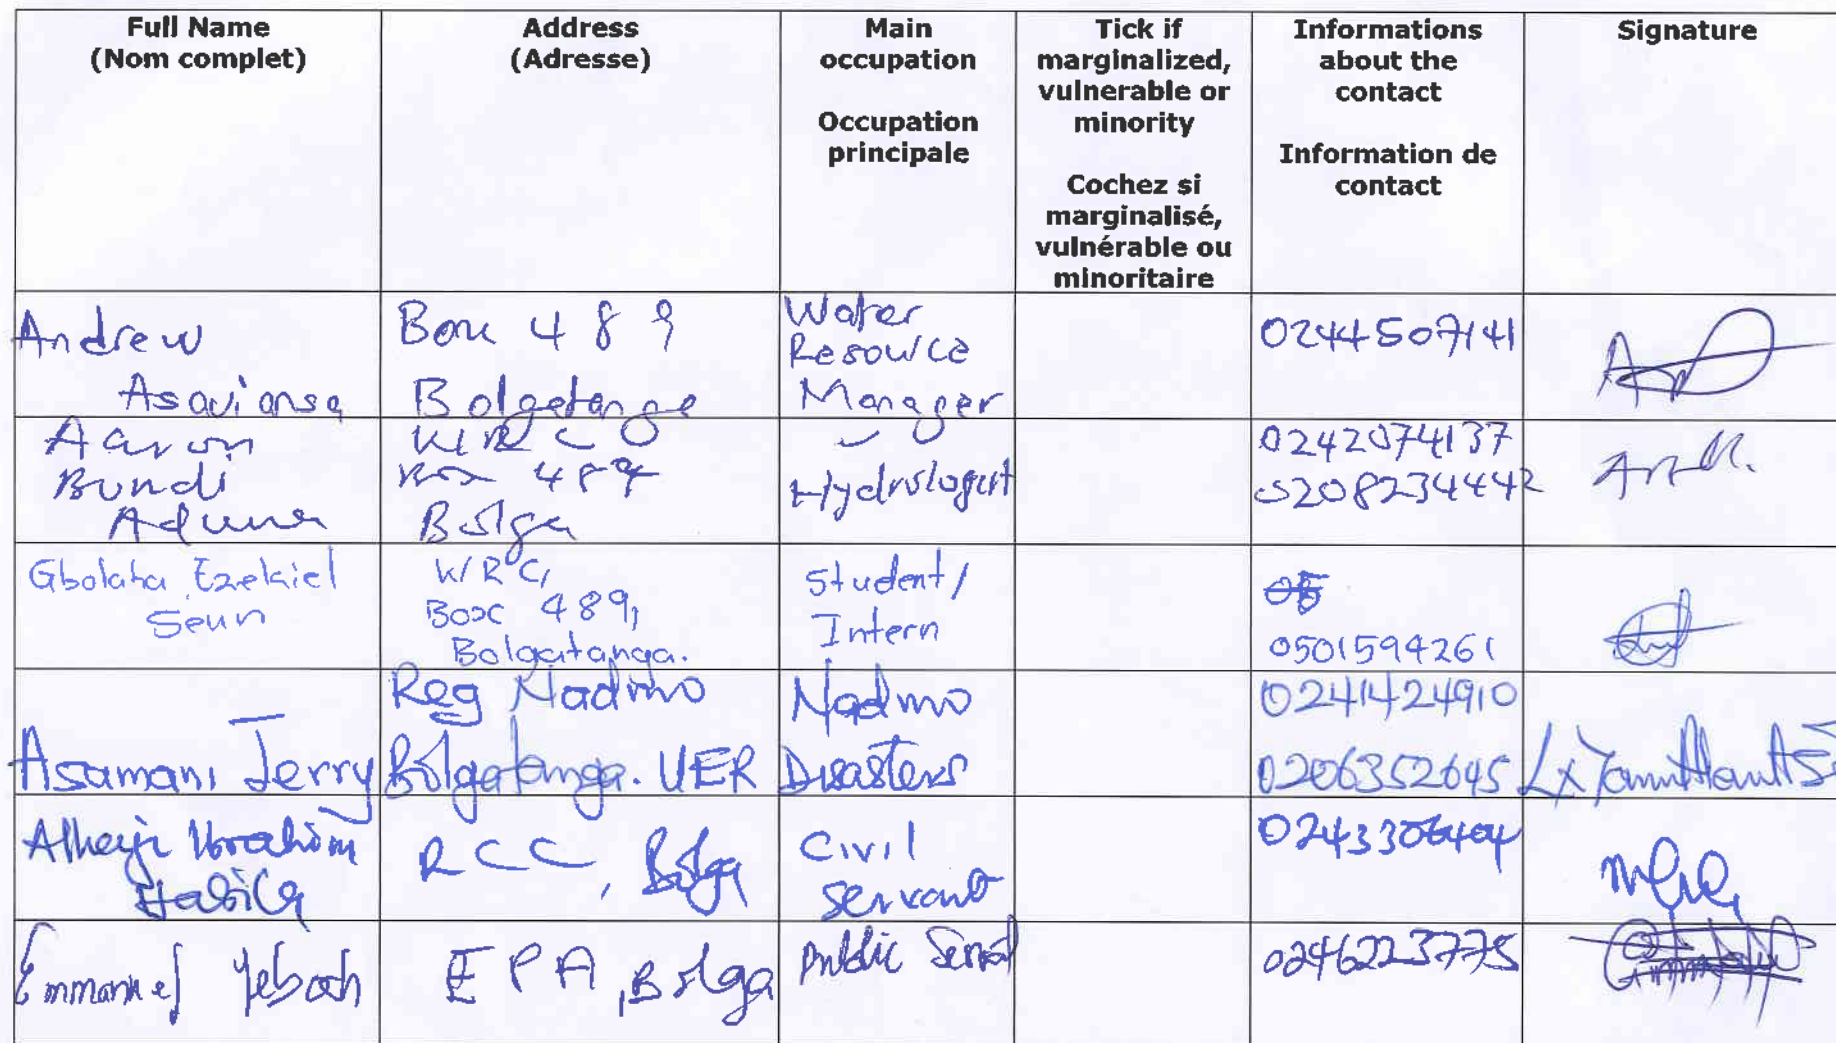 Full Name
(Nom complet)
Address
(Adresse)
Main
occupation
Occupation
principale
Tick if
marginalized,
vulnerable or
minority
Cochez si
marginalisé,
vulnérable ou
minoritaire
Informations
about the
contact
Information de
contact
Signature
Andrew
Asavianse
Box 489
Bolgatanga
Water
Resource
Manager
0244507141
Aaron
Bundi
Aduna
WRC
Box 489
Bolga
Hydrologist
0242074137
0208234442
Gbolaha Ezekiel
Seun
WRC,
Box 489,
Bolgatanga.
Student/
Intern
05
0501594261
Asamani Jerry
Reg Nadmo
Bolgatanga. UER
Nadmo
Disasters
0241424910
0206352645
Alhaji Ibrahim
Habila
RCC, Bolga
Civil
Servant
Emmanuel Yeboah
EPA, Bolga
Public Servant
0246223775